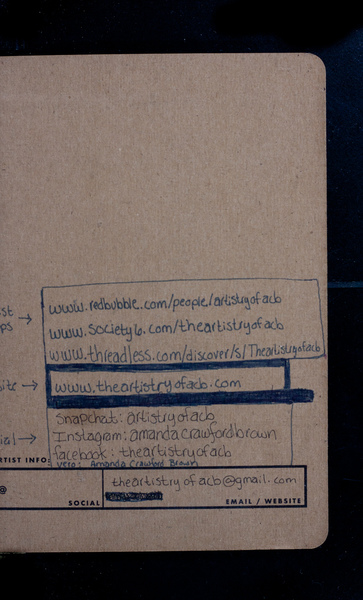 www.redbubble.com/people/artistryofacb
ist
ps → www.society6.com/theartistryofacb
www.threadless.com/discover/s/Theartistryofacb
site → www.theartistryofacb.com
Snapchat: artistryofacb
ial → Instagram: amandacrawfordbrown
facebook: theartistryofacb
RTIST INFO: vero: Amanda Crawford Brown
@ theartistryofacb@gmail.com
SOCIAL EMAIL / WEBSITE